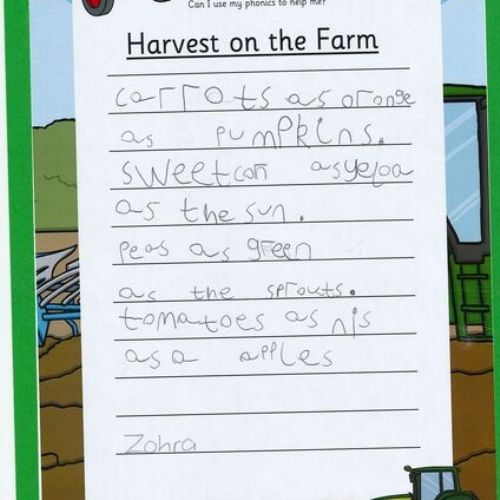 Can I use my phonics to help me?
Harvest on the Farm
carrots as orange
as pumpkins.
sweetcon asyeloa
as the sun.
peas as green
as the sprouts.
tomatoes as nis
as a apples
Zohra